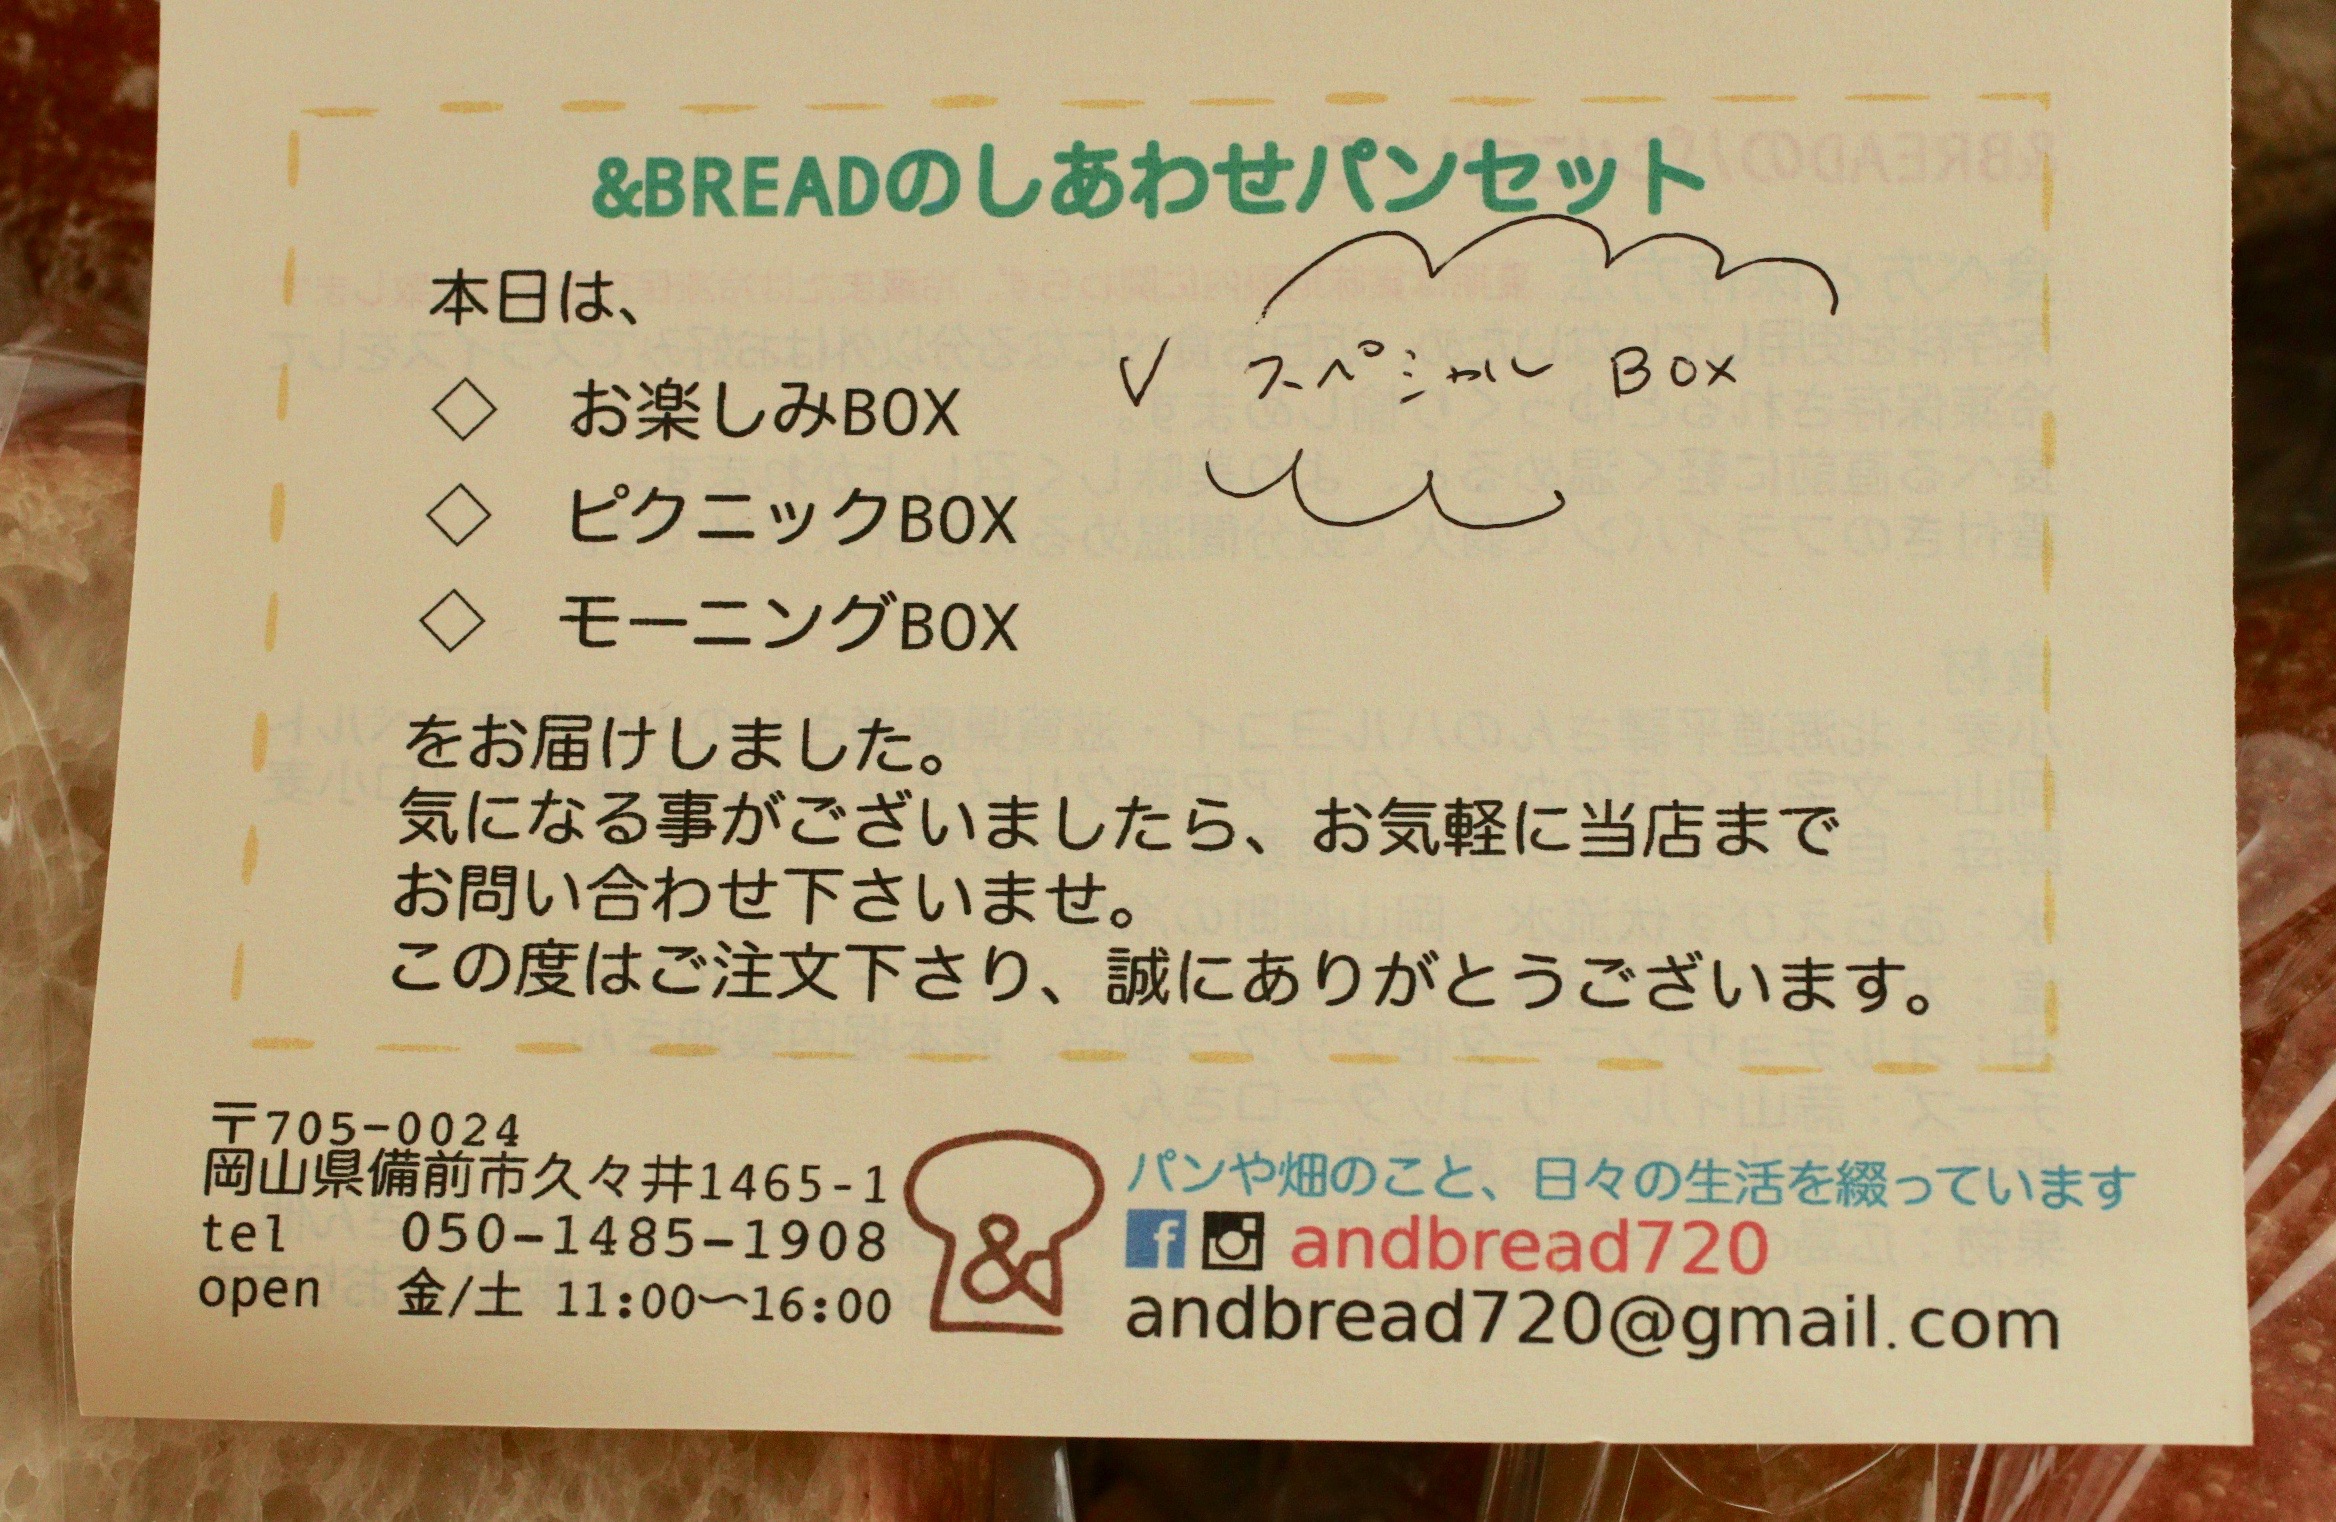 &BREADのしあわせパンセット
本日は、
✓ スペシャル BOX
◇ お楽しみBOX
◇ ピクニックBOX
◇ モーニングBOX
をお届けしました。
気になる事がございましたら、お気軽に当店まで
お問い合わせ下さいませ。
この度はご注文下さり、誠にありがとうございます。
〒705-0024
岡山県備前市久々井1465-1
tel 050-1485-1908
open 金/土 11:00〜16:00
&
パンや畑のこと、日々の生活を綴っています
f andbread720
andbread720@gmail.com